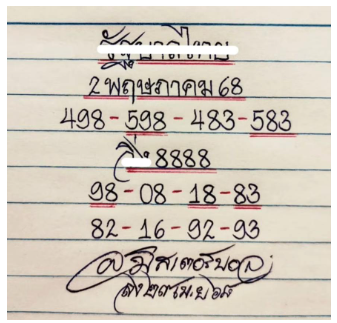 รัฐบาลไทย
2 พฤษภาคม 68
498-598-483-583
วิ่ง 8888
98-08-18-83
82-16-92-93